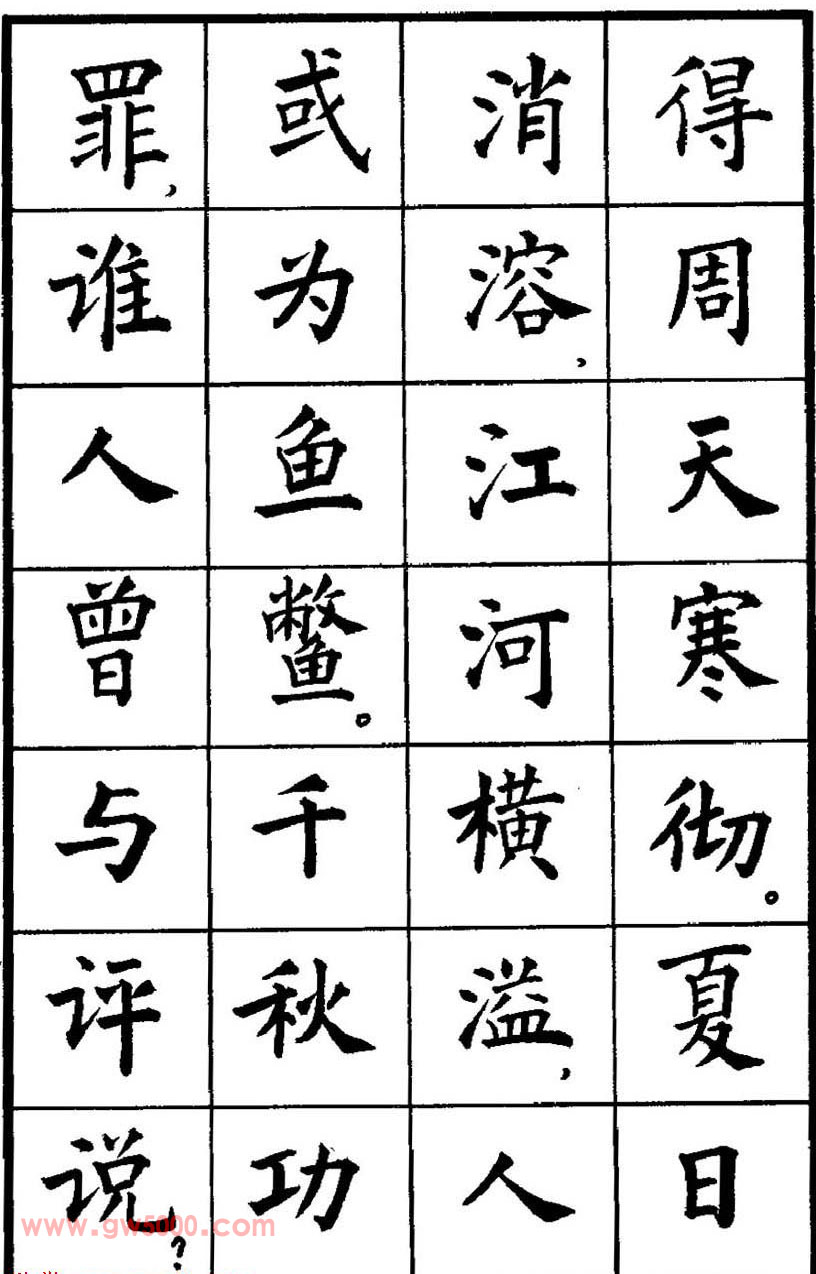 得周天寒彻。夏日
消溶，江河横溢，人
或为鱼鳖。千秋功
罪，谁人曾与评说？
www.gw5000.com